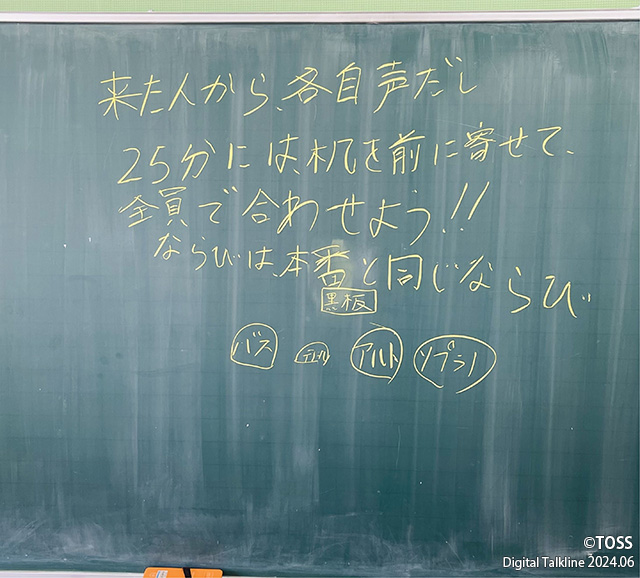 来た人から、各自声だし
25分には、机を前に寄せて、
全員で合わせよう!!
ならびは、本番と同じならび
黒板
バス テノール アルト ソプラノ
©TOSS
Digital Talkline 2024.06